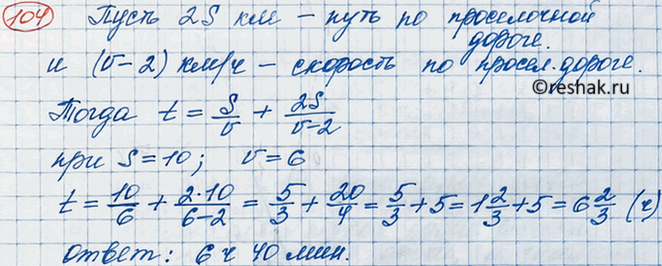 104 Пусть 2S км – путь по проселочной
дороге.
и (v-2) км/ч – скорость по просел. дороге.
©reshak.ru
Тогда t = S/v + 2S/(v-2)
при S=10; v=6
t = 10/6 + 2·10/(6-2) = 5/3 + 20/4 = 5/3 + 5 = 1 2/3 + 5 = 6 2/3 (ч)
ответ: 6 ч 40 мин.